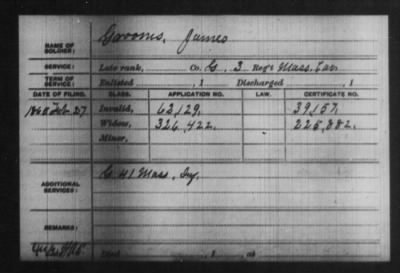 NAME OF SOLDIER: Grooms, James
SERVICE: Late rank, Co. G, 3 Reg't Mass. Cav
TERM OF SERVICE: Enlisted , 1 Discharged , 1
DATE OF FILING. CLASS. APPLICATION NO. LAW. CERTIFICATE NO.
Feb. 27 Invalid, 62,129. 39,157.
Widow, 326,422. 225,882.
Minor,
ADDITIONAL SERVICES: G 41 Mass. Inf.
REMARKS: